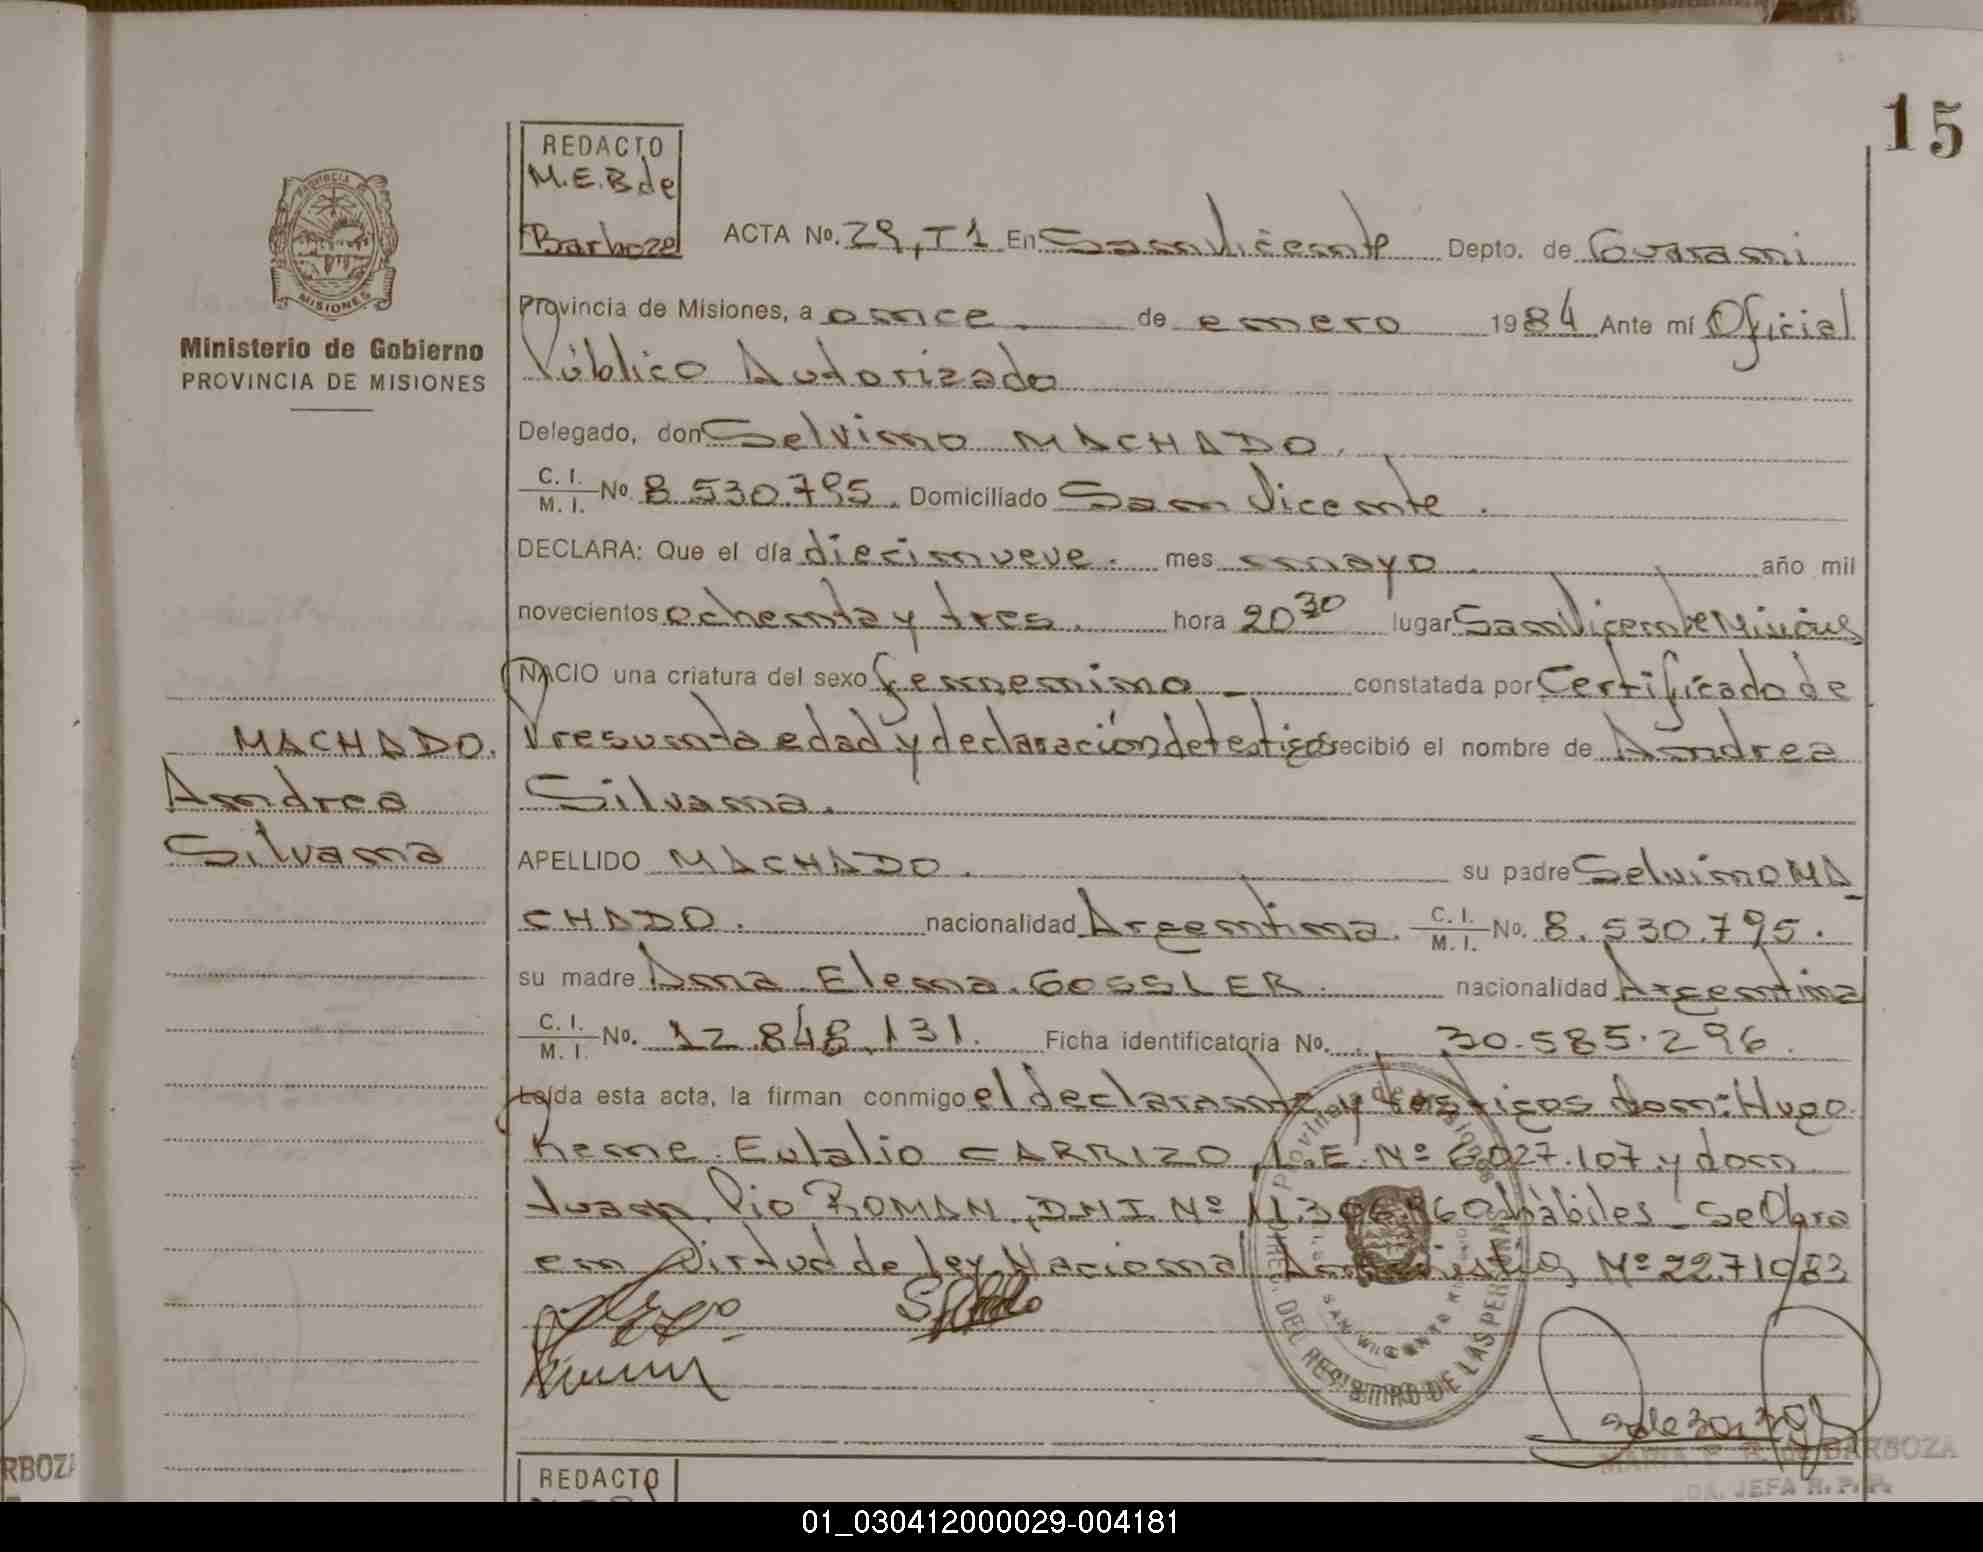 15
REDACTO
M.E.B de
Barboza
PROVINCIA DE
MISIONES
Ministerio de Gobierno
PROVINCIA DE MISIONES
ACTA No. 29, T1 En San Vicente Depto. de Guarani
Provincia de Misiones, a once de enero 1984 Ante mí Oficial
Público Autorizado
Delegado, don Selvino MACHADO.
C. I. / M. I. No. 8.530.795. Domiciliado San Vicente.
DECLARA: Que el día diecinueve. mes mayo. año mil
novecientos ochenta y tres. hora 20 30 lugar San Vicente Misiones
NACIO una criatura del sexo femenino - constatada por Certificado de
Presunta edad y declaración de testigos recibió el nombre de Andrea
Silvana.
MACHADO.
Andrea
Silvana
APELLIDO MACHADO. su padre Selvino MA
CHADO. nacionalidad Argentina. C. I. / M. I. No. 8.530.795.
su madre Ana Elena GOSSLER. nacionalidad Argentina
C. I. / M. I. No. 12.848.131. Ficha identificatoria No. 30.585.296.
Leída esta acta, la firman conmigo el declarante y testigos don: Hugo
Rene Eulalio CARRIZO, L.E. Nº 027.107 y don
Juan Pio ROMAN, DNI. Nº hábiles_ Se Obra
en Virtud de ley Nacional Amnistia Nº 22.710/83
DEL REGISTRO DE LAS PERSONAS
MARIA E. B. de BARBOZA
JEFA R.P.P.
RBOZA
REDACTO
01_030412000029-004181